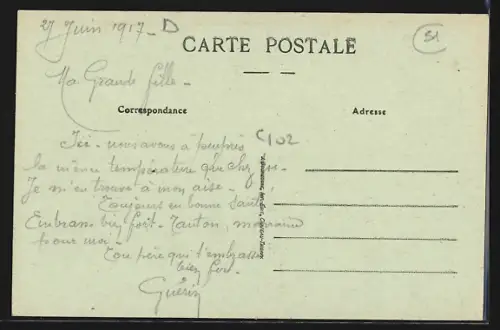 27 Juin 1917 - D
51
CARTE POSTALE
Ma Grande fille -
Correspondance
Adresse
Ici - nous avons à peu près
C102
la même température que chez
Je m'en trouve à mon aise -
Toujours en bonne santé
Embrasse bien fort - Tonton, marraine
pour moi -
Ton père qui t'embrasse
bien fort
Guérin